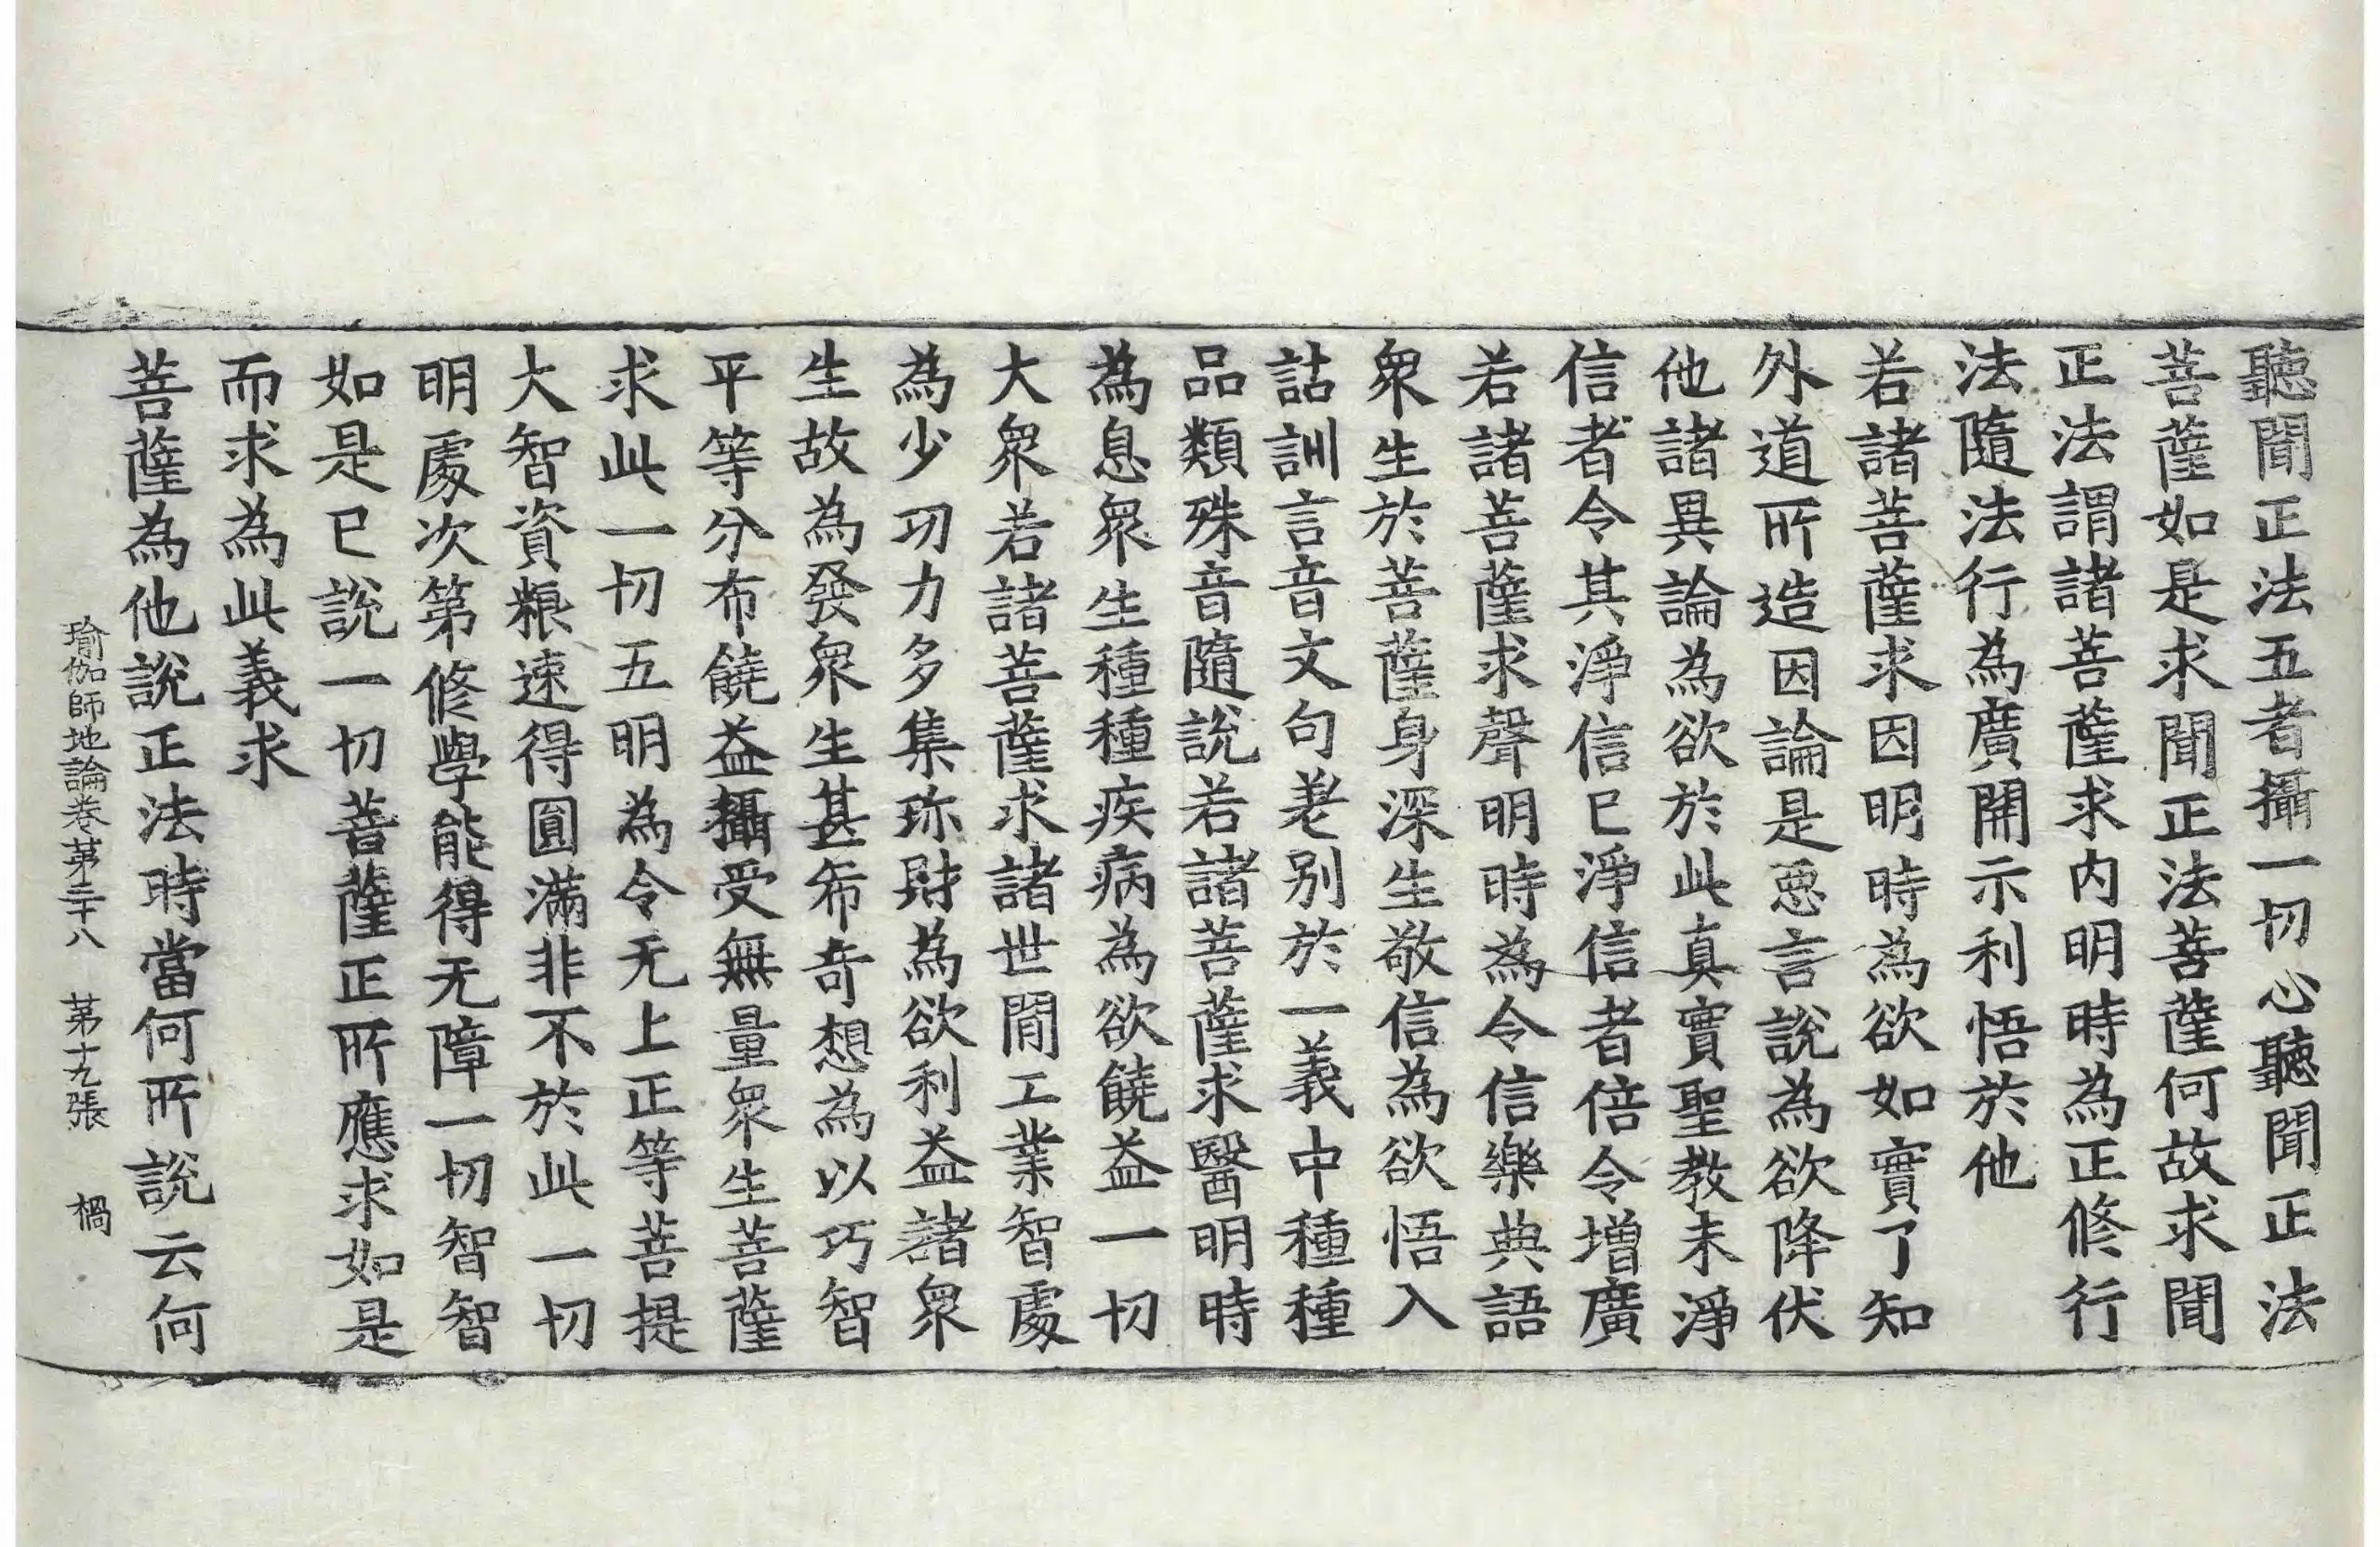 聽聞正法五者攝一切心聽聞正法
菩薩如是求聞正法菩薩何故求聞
正法謂諸菩薩求内明時為正修行
法隨法行為廣開示利悟於他
若諸菩薩求因明時為欲如實了知
外道所造因論是惡言說為欲降伏
他諸異論為欲於此真實聖教未淨
信者令其淨信已淨信者倍令增廣
若諸菩薩求聲明時為令信樂典語
衆生於菩薩身深生敬信為欲悟入
詁訓言音文句差别於一義中種種
品類殊音隨說若諸菩薩求醫明時
為息衆生種種疾病為欲饒益一切
大衆若諸菩薩求諸世間工業智處
為少功力多集珎財為欲利益諸衆
生故為發衆生甚希奇想為以巧智
平等分布饒益攝受無量衆生菩薩
求此一切五明為令无上正等菩提
大智資粮速得圓滿非不於此一切
明處次第修學能得无障一切智智
如是已說一切菩薩正所應求如是
而求為此義求
菩薩為他說正法時當何所說云何
瑜伽師地論卷第三十八 第十九張 㭲